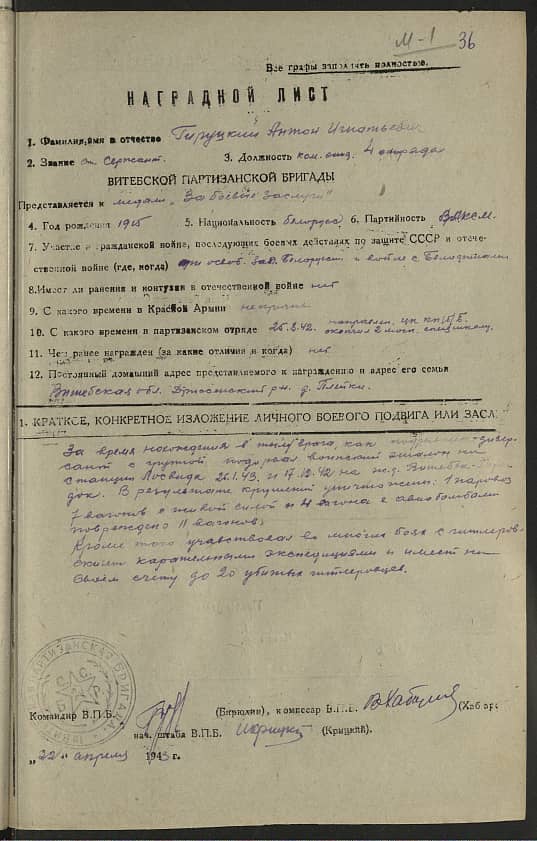 М-1 36
Все графы заполнять полностью.
НАГРАДНОЙ ЛИСТ
1. Фамилия, имя и отчество Гируцкий Антон Игнатьевич
2. Звание ст. Сержант. 3. Должность ком. отд. 4 отряда
ВИТЕБСКОЙ ПАРТИЗАНСКОЙ БРИГАДЫ
Представляется к медали „За боевые заслуги"
4. Год рождения 1915 5. Национальность белорус 6. Партийность ВЛКСМ.
7. Участие в гражданской войне, последующих боевых действиях по защите СССР и отече-
ственной войне (где, когда) при освоб. Зап. Белоруссии и войне с белофиннами
8. Имел ли ранения и контузии в отечественной войне нет
9. С какого времени в Красной Армии
10. С какого времени в партизанском отряде 25.8.42. направлен. цк кп/б/Б. окончил 2 мося.
11. Чем ранее награжден (за какие отличия и когда) нет
12. Постоянный домашний адрес представляемого к награждению и адрес его семьи
Витебская обл. Дриссенский р-н. д.
1. КРАТКОЕ, КОНКРЕТНОЕ ИЗЛОЖЕНИЕ ЛИЧНОГО БОЕВОГО ПОДВИГА ИЛИ ЗАСЛ
За время нахождения в тылу врага, как подрывник-дивер-
сант с группой подорвал воинский эшелон на
станции Лосвида 26.1.43. и 17.12.42 на ж.д. Витебск-Горо-
док. В результате крушений уничтожены: 1 паровоз
7 вагонов с живой силой и 4 вагона с авиабомбами
повреждено 11 вагонов.
Кроме того участвовал во многих боях с гитлеров-
скими карательными экспедициями и имеет на
своём счету до 20 убитых гитлеровцев.
ПАРТИЗАНСКАЯ БРИГАДА
Командир В.П.Б. (Бирюлин), комиссар В.П.Б. ВХабаров (Хабаро
нач. штаба В.П.Б. (Крицкий).
„22" апреля 1943 г.